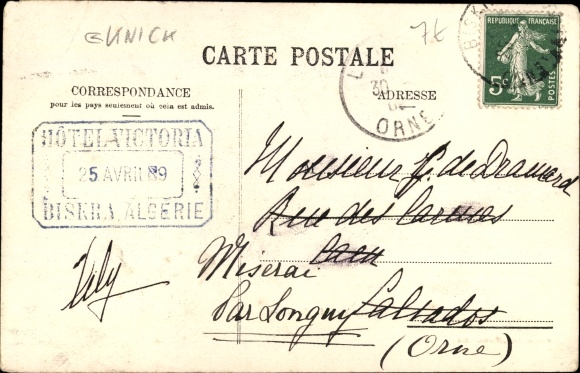 GKNICK
7€
CARTE POSTALE
CORRESPONDANCE
pour les pays seulement où cela est admis.
ADRESSE
REPUBLIQUE FRANÇAISE
5c
POSTES
BISK
30
ORNE
HÔTEL VICTORIA
25 AVRIL 09
BISKRA, ALGÉRIE
Monsieur J. de Dramard
Rue des Carmes
Caen
Miserai
Par Longny Calvados
(Orne)